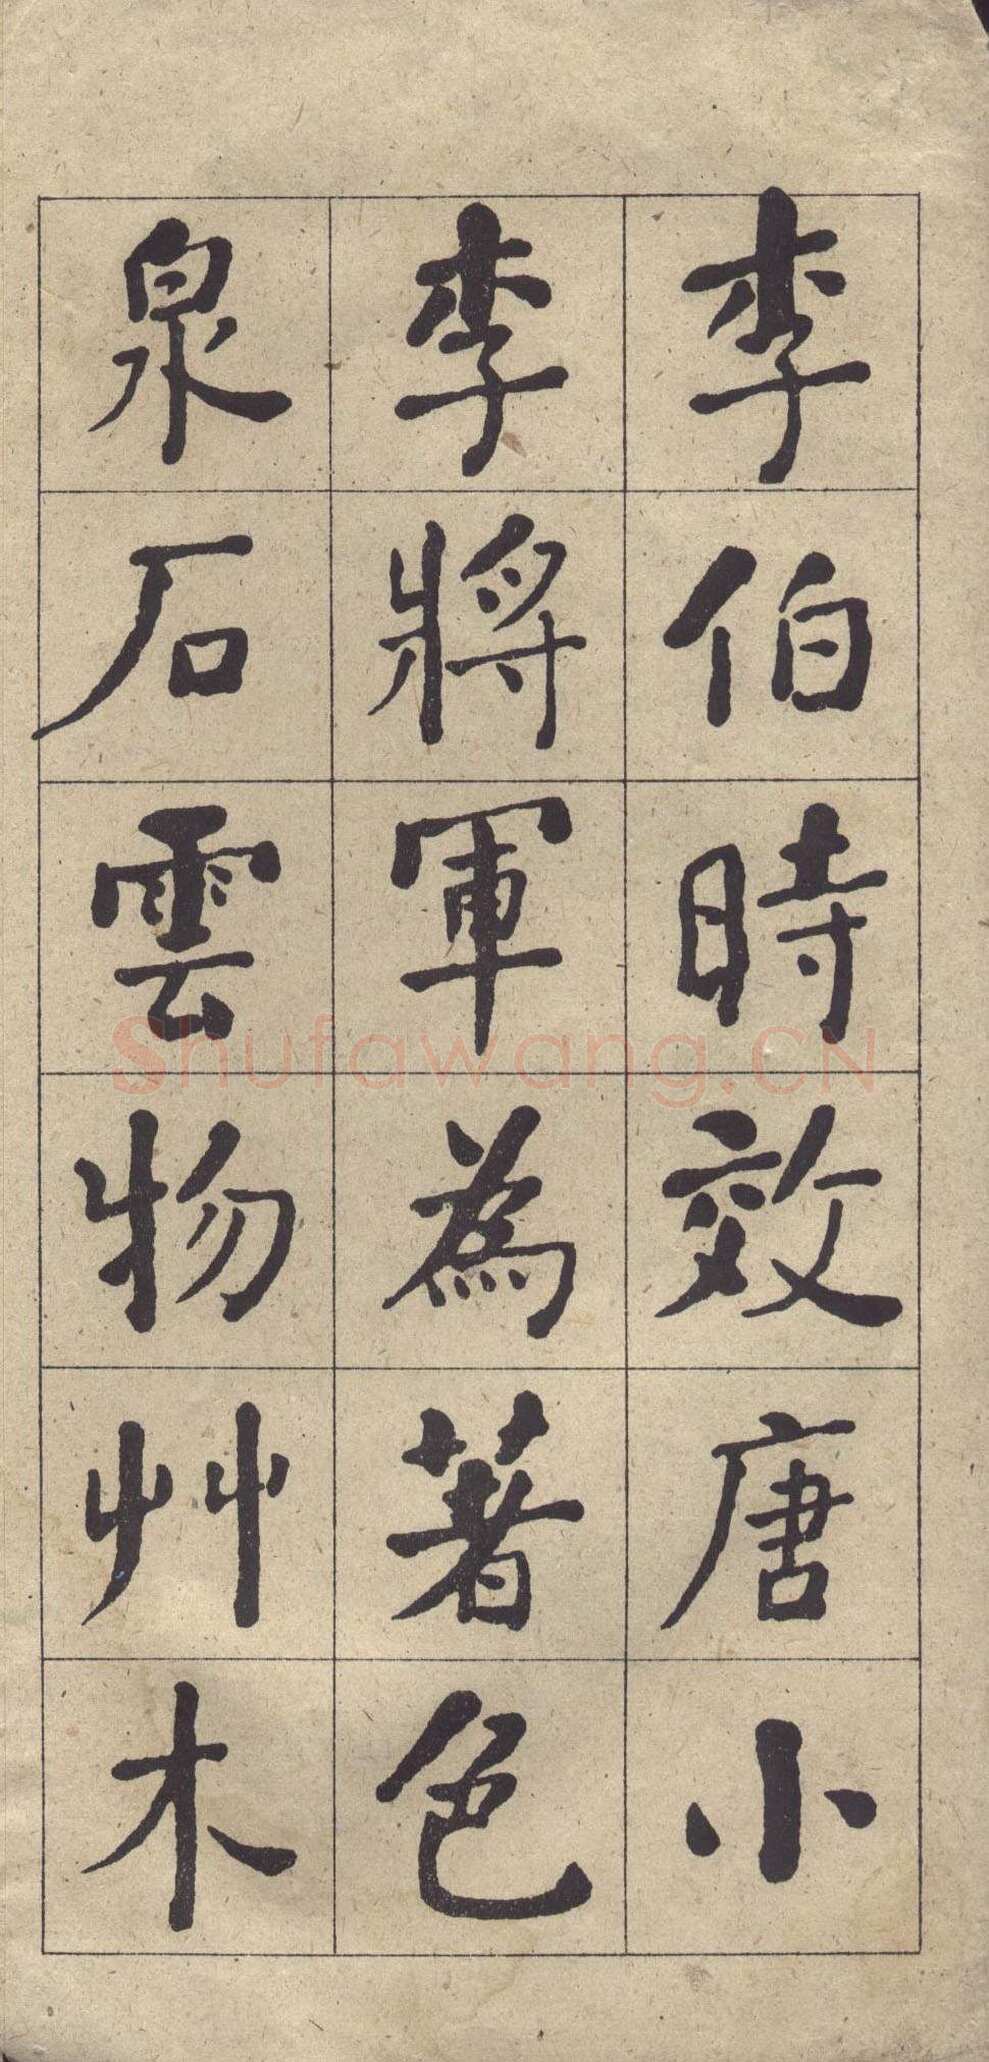 李伯時效唐小
李將軍為著色
泉石雲物艸木
Shufawang.CN